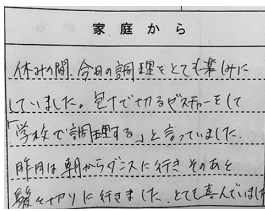 家庭から
休みの間、今日の調理をとても楽しみに
していました。包丁で切るゼスチャーをして
「学校で調理する」と言っていました。
昨日は朝からダンスに行き そのあと
髪を切りに行きました。とても喜んでいました